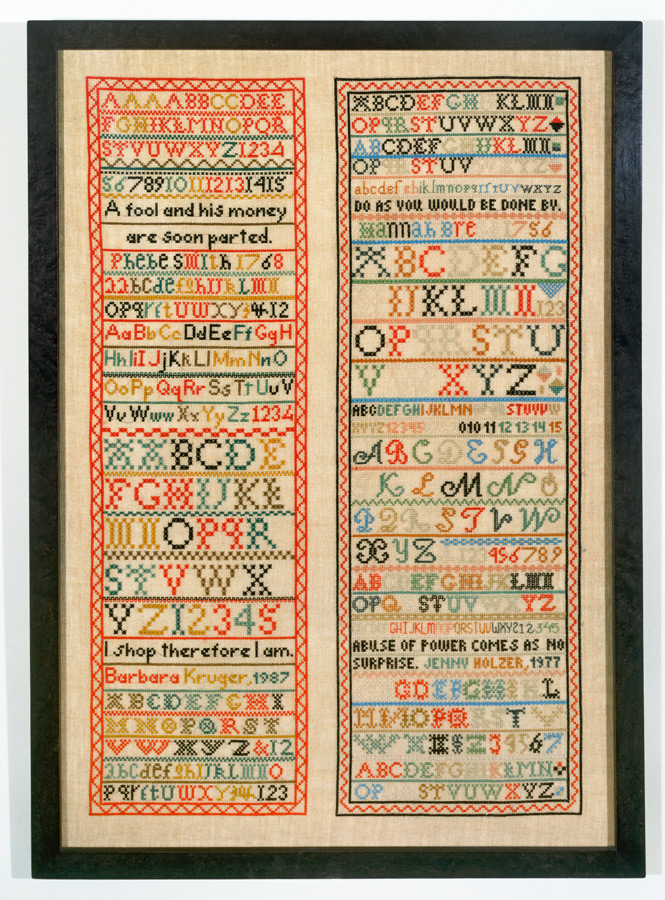 AAAABBCCDEE
FGHIKLMNOPQR
STVUWXYZ1234
56789101112131415
A fool and his money
are soon parted.
Phebe Smith 1768
OPqrſtUWXYZ
AaBbCcDdEeFfGgH
HhIiIJjKkLlMmNnO
OoPpQqRrSsTtUuV
VvWwwXxYyZz1234
AABCDE
FGHIJKL
MNOPqR
STVWX
YZ12345
I shop therefore I am.
Barbara Kruger, 1987
ABCDEFGHI
MNOPQRST
VWXYZ&12
PqrſtUWXYZ123
ABCDEFGH KLMN
OPqRSTUVWXYZ
ABCDEFG HIKLMN
OP STUV YZ
abcdef ghiklmnopqrſstUVWXYZ
DO AS YOU WOULD BE DONE BY.
Hannah Bre 1756
ABCDEFG
IJKLMN123
OPqRSTU
V XYZ
ABCDEFGHIJKLMN STUVW
XYZ12345 010 11 12 13 14 15
ABCDEFGH
KLMNO
PQRSTVW
XYZ 123456789
AB DEFGHIJKLMN
OPQ STUV YZ
GHIJKLM OPQRSTUVWXYZ12345
ABUSE OF POWER COMES AS NO
SURPRISE. JENNY HOLZER, 1977
CDEFGH L
MNOPQRST V
W 4567
ABCDEFGHIKLMN
OP STVUWXYZ